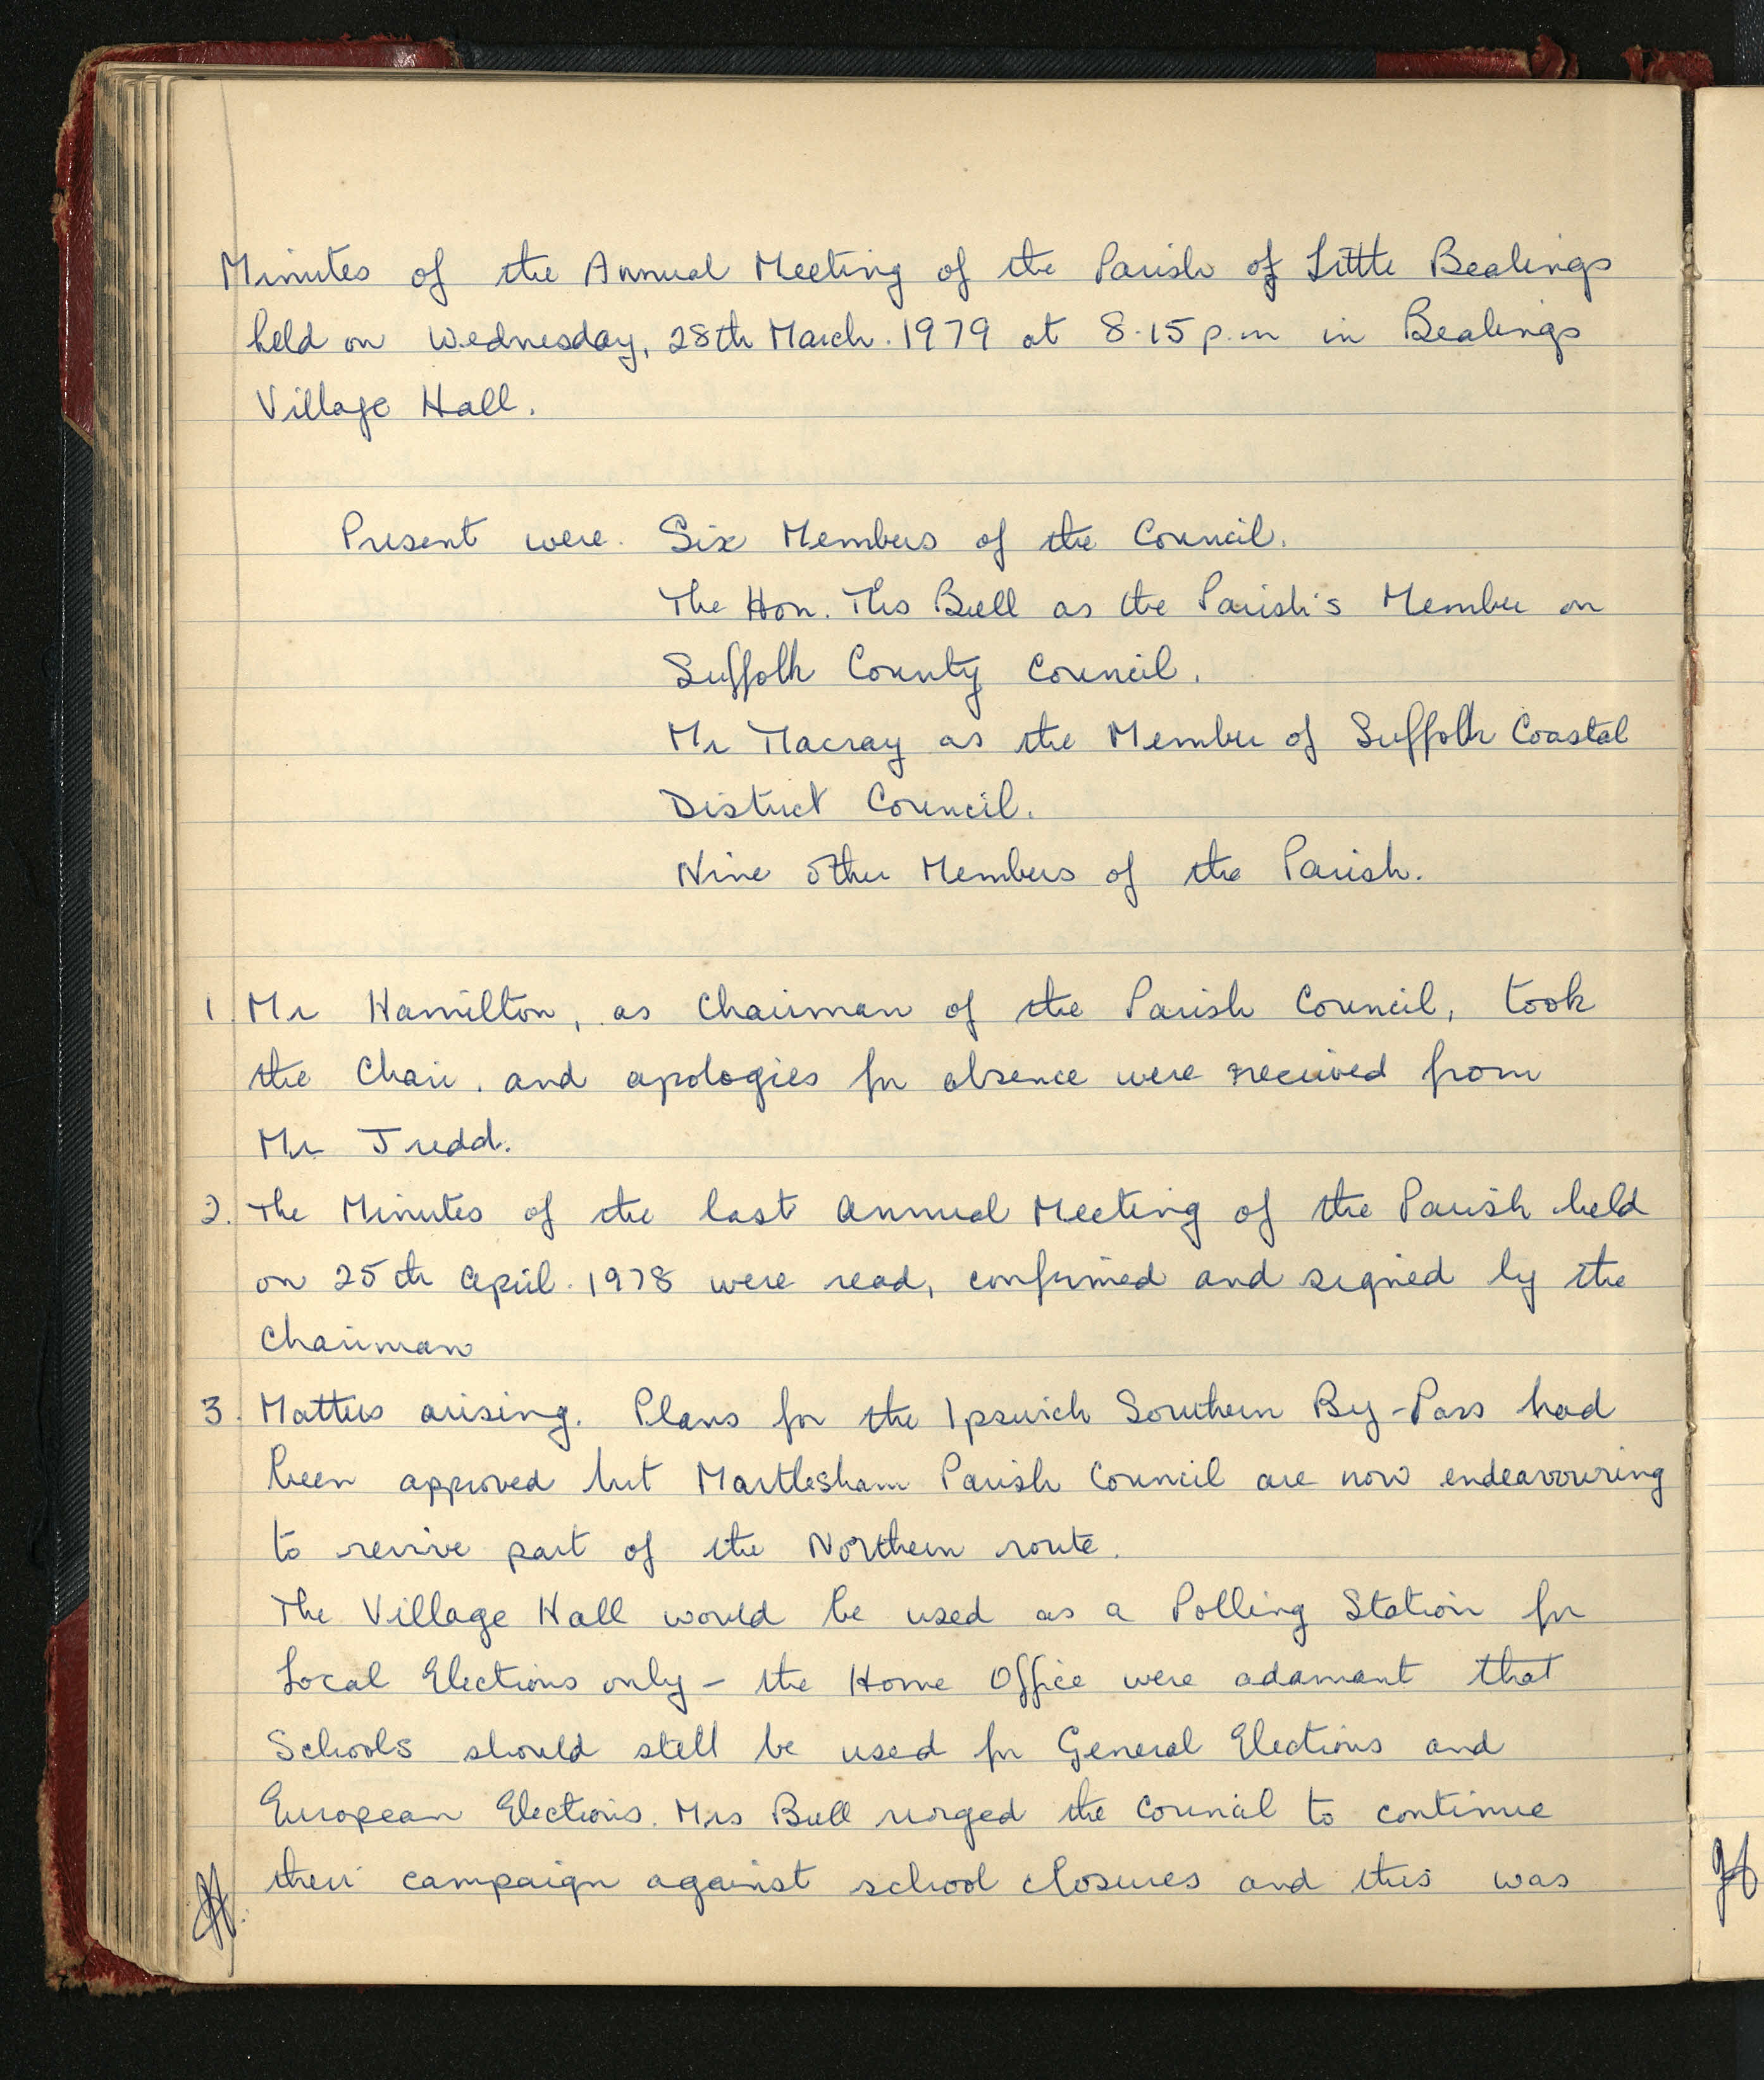 Minutes of the Annual Meeting of the Parish of Little Bealings
held on Wednesday, 28th March. 1979 at 8.15 p.m in Bealings
Village Hall.
Present were. Six Members of the Council.
The Hon. Mrs Bull as the Parish's Member on
Suffolk County Council.
Mr Macray as the Member of Suffolk Coastal
District Council.
Nine other Members of the Parish.
1. Mr Hamilton, as Chairman of the Parish Council, took
the Chair. and apologies for absence were received from
Mr Tredd.
2. The Minutes of the last Annual Meeting of the Parish held
on 25th April. 1978 were read, confirmed and signed by the
Chairman
3. Matters arising. Plans for the Ipswich Southern By-Pass had
been approved but Martlesham Parish Council are now endeavouring
to revive part of the Northern route.
The Village Hall would be used as a Polling Station for
Local Elections only - the Home Office were adamant that
Schools should still be used for General Elections and
European Elections. Mrs Bull urged the Council to continue
their campaign against school closures and this was